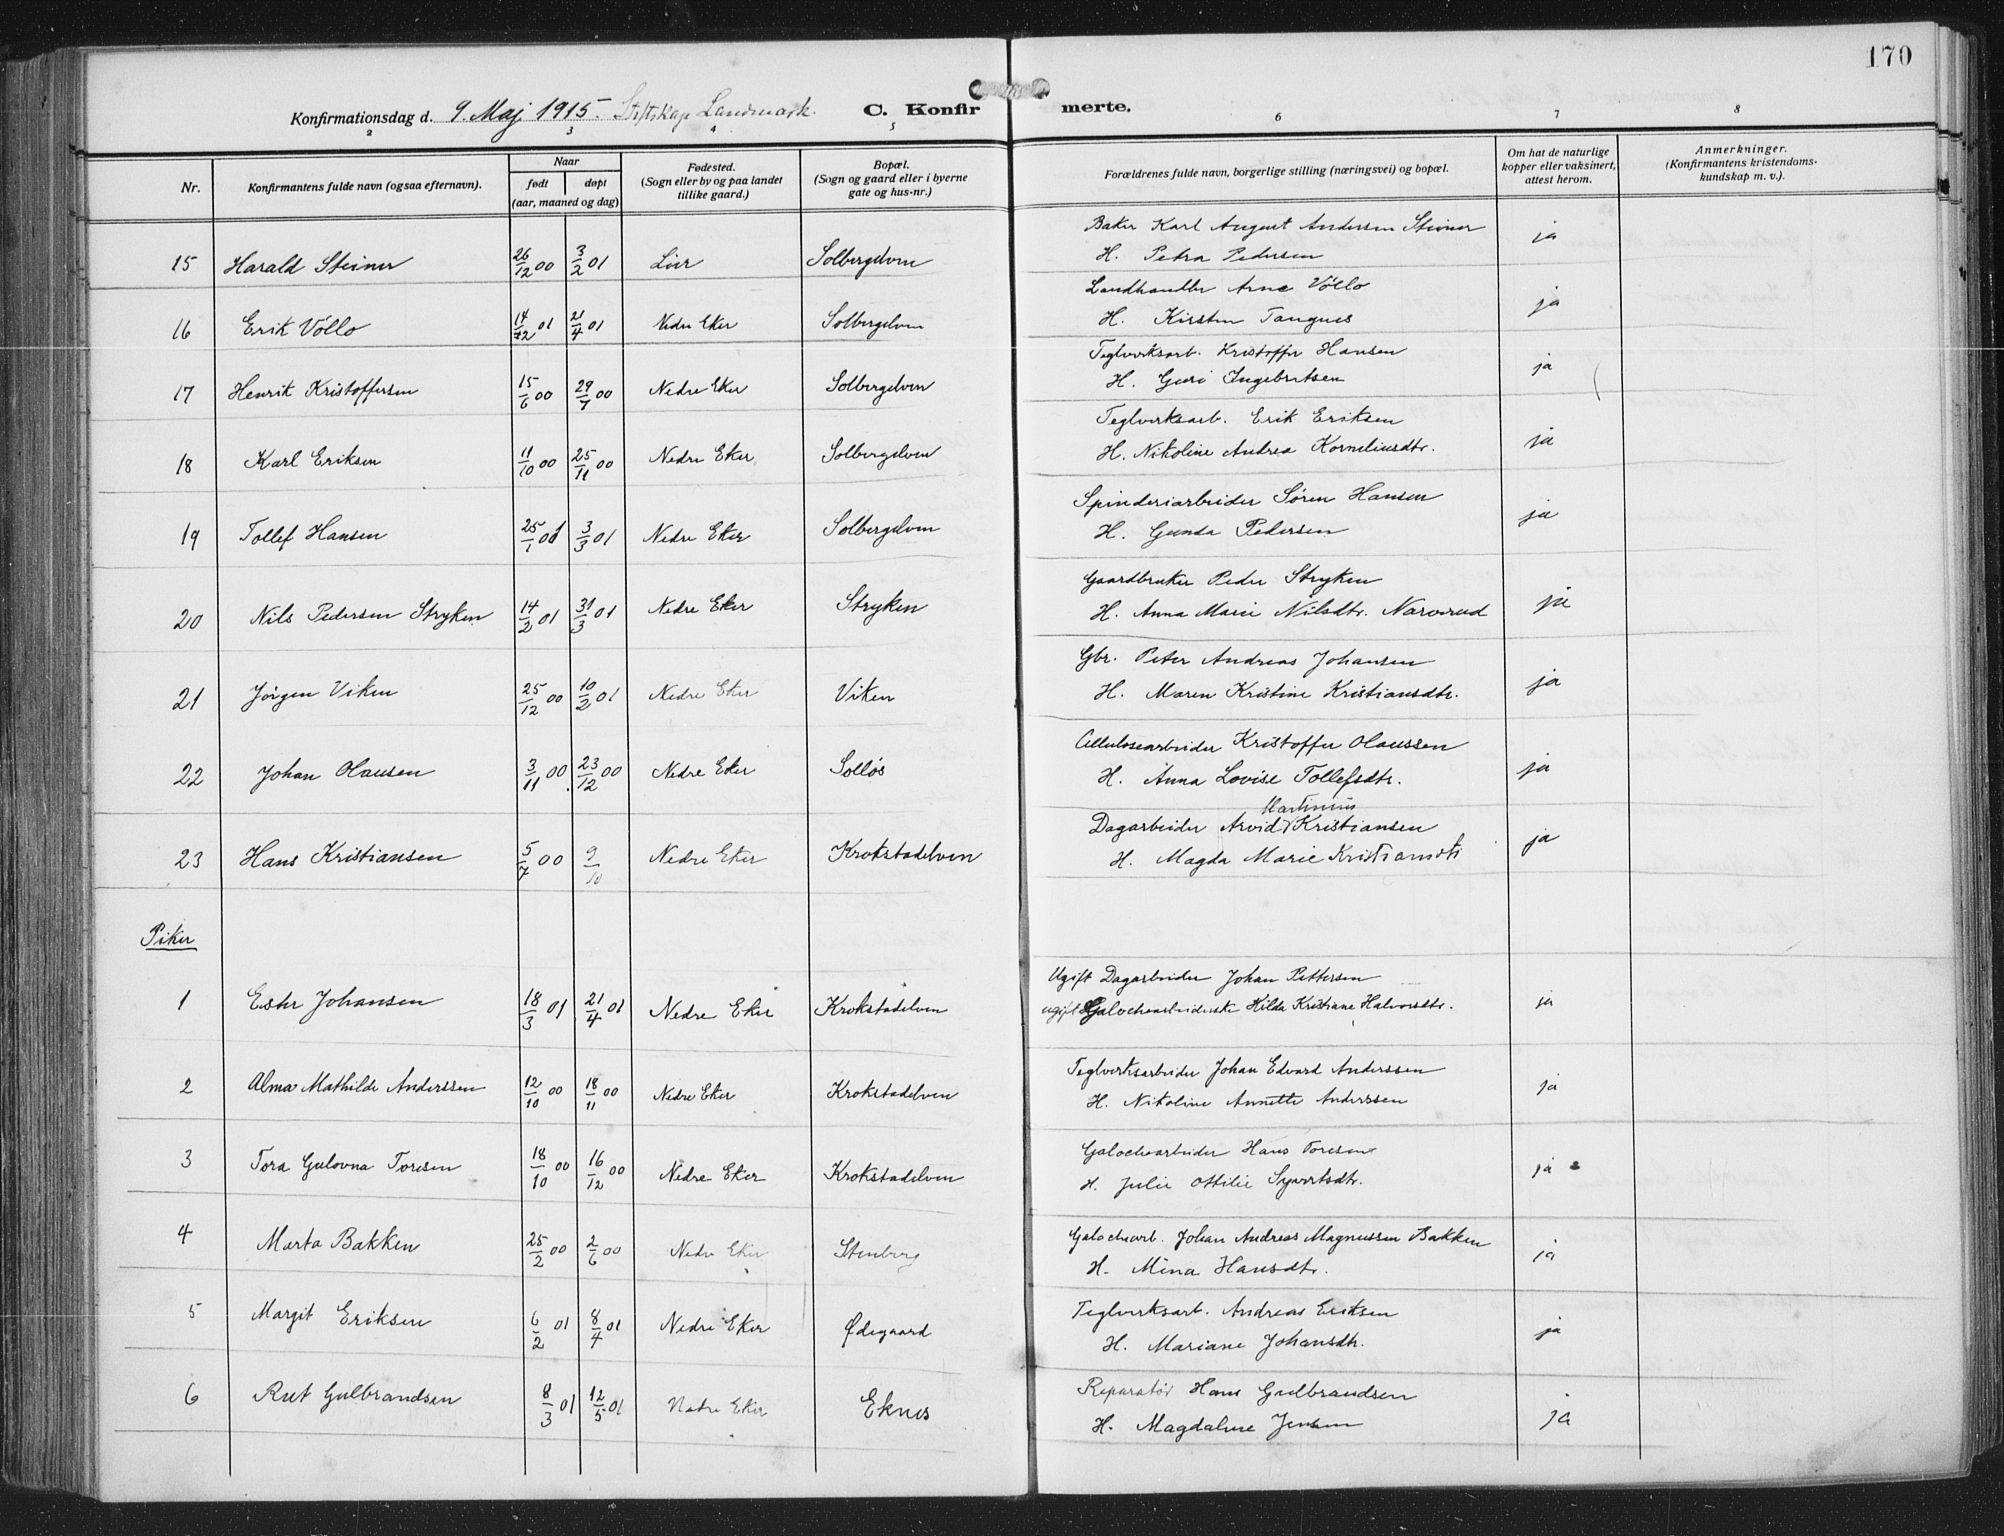 170
Konfirmationsdag d. 9. Maj 1915. Stiftskap Landmark. C. Konfirmerte.
2 3 4 5 6 7 8
Nr. Konfirmantens fulde navn (ogsaa efternavn). Naar født døpt (aar, maaned og dag) Fødested. (Sogn eller by og paa landet tillike gaard.) Bopæl. (Sogn og gaard eller i byerne gate og hus-nr.) Forældrenes fulde navn, borgerlige stilling (næringsvei) og bopæl. Om hat de naturlige kopper eller vaksinert, attest herom. Anmerkninger. (Konfirmantens kristendoms-kundskap m. v.).
Baker Karl August Andersen Steiner
15 Harald Steiner 26/12 00 3/2 01 Lier Solbergelven H. Petra Pedersen ja
Landhandler Arne Vøllo
16 Erik Vøllo 14/12 01 21/4 01 Nedre Eker Solbergelven H. Kirsten Tangnes ja
Teglverksarb. Kristoffer Hansen
17 Henrik Kristoffersen 15/6 00 29/7 00 Nedre Eker Solbergelven H. Guri Ingebretsen ja
Teglverksarb. Erik Eriksen
18 Karl Eriksen 11/10 00 25/11 00 Nedre Eker Solbergelven H. Nikoline Andrea Korneliusdtr. ja
Spinderiarbeider Søren Hansen
19 Tollef Hansen 25/1 01 3/3 01 Nedre Eker Solbergelven H. Gunda Pedersen ja
Gaardbruker Peder Stryken
20 Nils Pedersen Stryken 14/2 01 31/3 01 Nedre Eker Stryken H. Anna Marie Nilsdtr. Narverud ja
Gbr. Peter Andreas Johansen
21 Jørgen Viken 25/12 00 10/2 01 Nedre Eker Viken H. Maren Kristine Kristiansdtr. ja
Cellulosearbeider Kristoffer Olaussen
22 Johan Olausen 3/11 00 23/12 00 Nedre Eker Solløs H. Anna Lovise Tollefsdtr. ja
Martinius
Dagarbeider Arvid Kristiansen
23 Hans Kristiansen 5/7 00 9/10 Nedre Eker Krokstadelven H. Magda Marie Kristiansdtr ja
Piker
Ugift Dagarbeider Johan Pettersen
1 Ester Johansen 18/3 01 21/4 01 Nedre Eker Krokstadelven ugift Galochearbeiderske Hilda Kristiane Halvorsdtr. ja
Teglverksarbeider Johan Edvard Anderssen
2 Alma Mathilde Anderssen 12/10 00 18/11 00 Nedre Eker Krokstadelven H. Nikoline Annette Anderssen ja
Galochearbeider Hans Toresen
3 Tora Gulovna Toresen 18/10 00 16/12 00 Nedre Eker Krokstadelven H. Julie Ottilie Syvertsdtr. ja
Galochearb. Johan Andreas Magnussen Bakken
4 Marta Bakken 25/2 00 2/6 00 Nedre Eker Stenberg H. Mina Hansdtr. ja
Teglverksarb. Andreas Eriksen
5 Margit Eriksen 6/2 01 8/4 01 Nedre Eker Ødegaard H. Mariane Johansdtr. ja
Reparatør Hans Gulbrandsen
6 Rut Gulbrandsen 8/3 01 12/5 01 Nedre Eker Eknes H. Magdalene Jensen ja